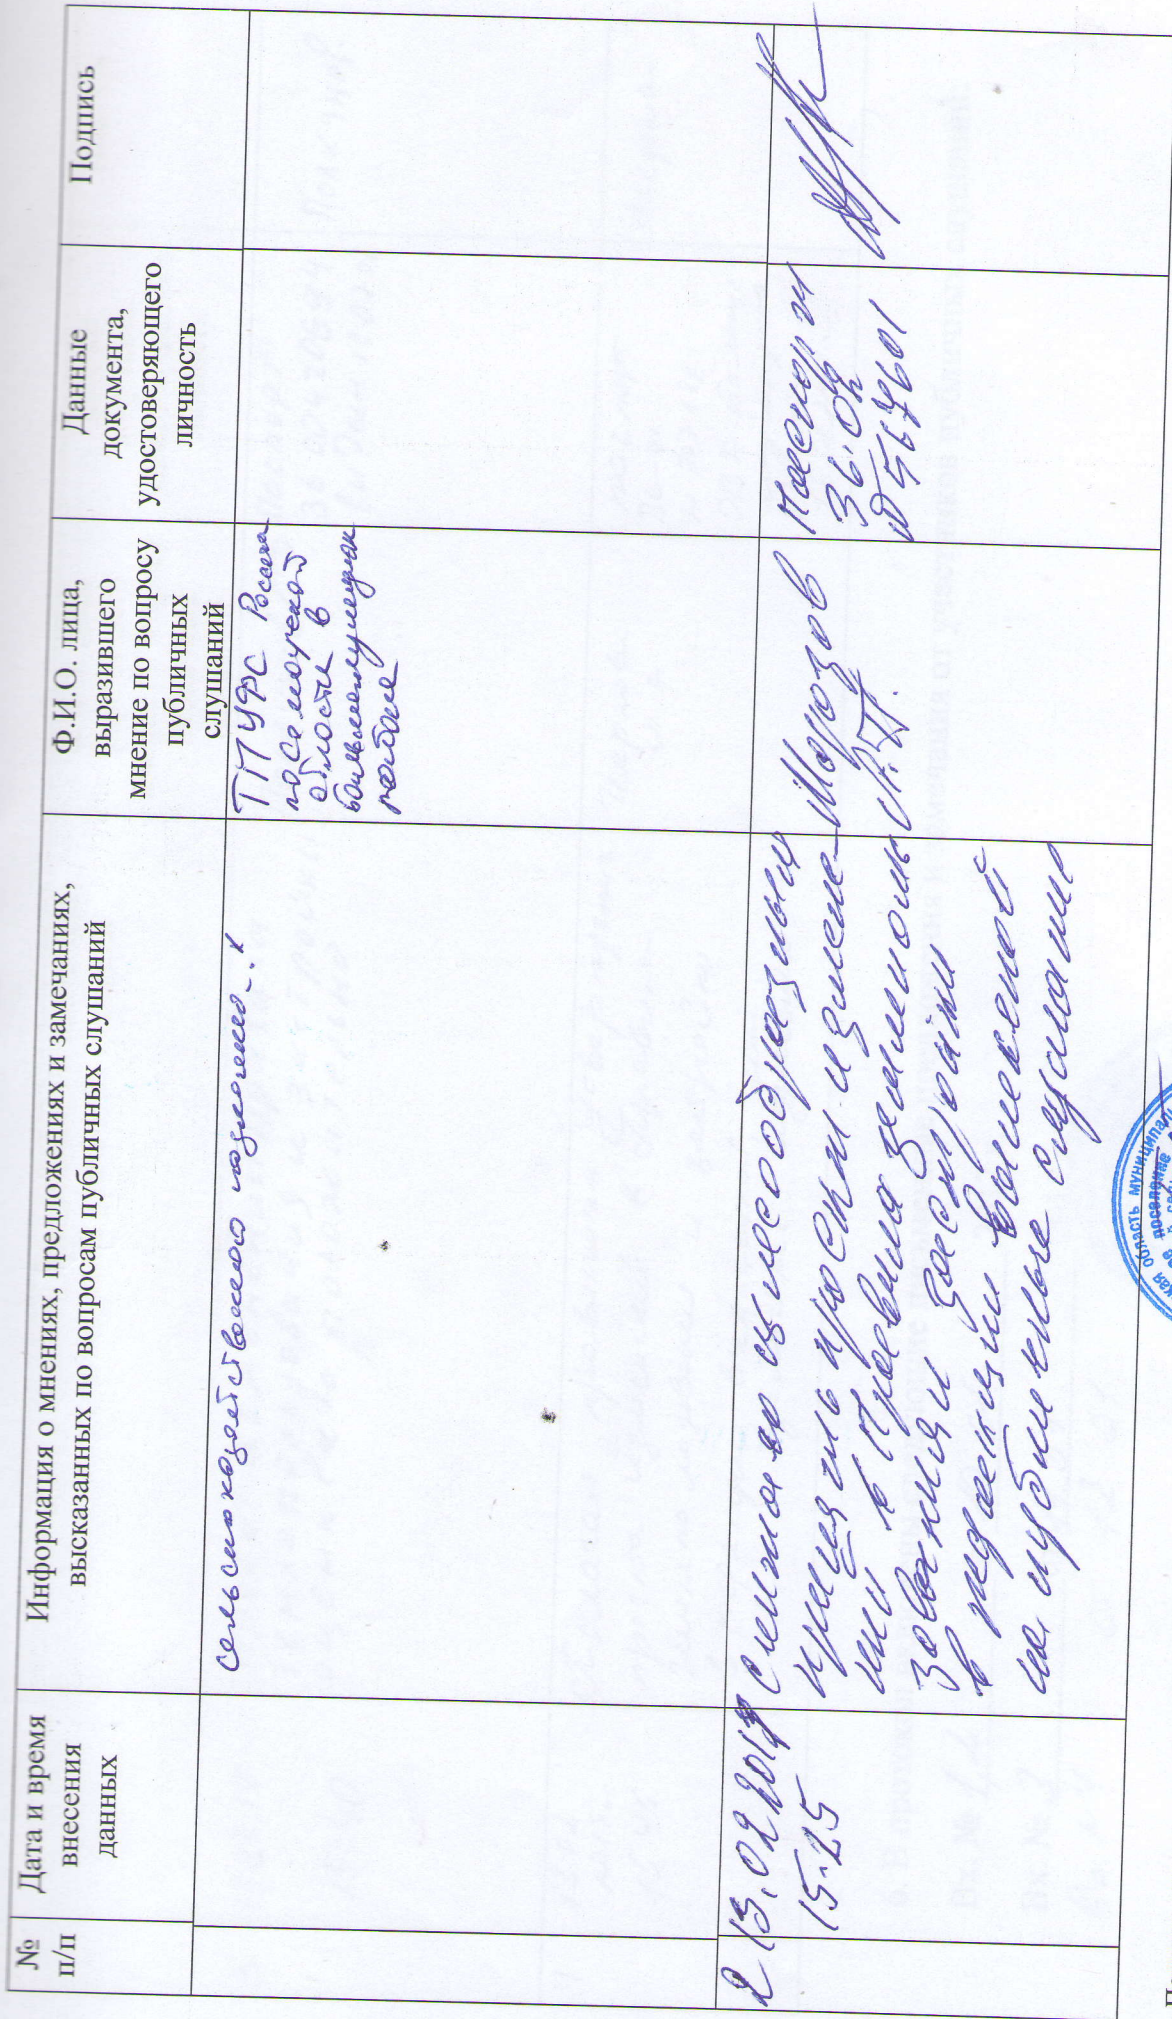 №
п/п
Дата и время
внесения
данных
Информация о мнениях, предложениях и замечаниях,
высказанных по вопросам публичных слушаний
Ф.И.О. лица,
выразившего
мнение по вопросу
публичных
слушаний
Данные
документа,
удостоверяющего
личность
Подпись
сельскохозяйственного назначения
ТП УФС России
по Самарской
области в
районе
2
15-25
Считаю целесообразным
принять проект измене-
ний в Правила земле
зовния и застройки
в редакции вынесенной
на публичные слушания
Морозов
Паспорт
область муниципал
поселение